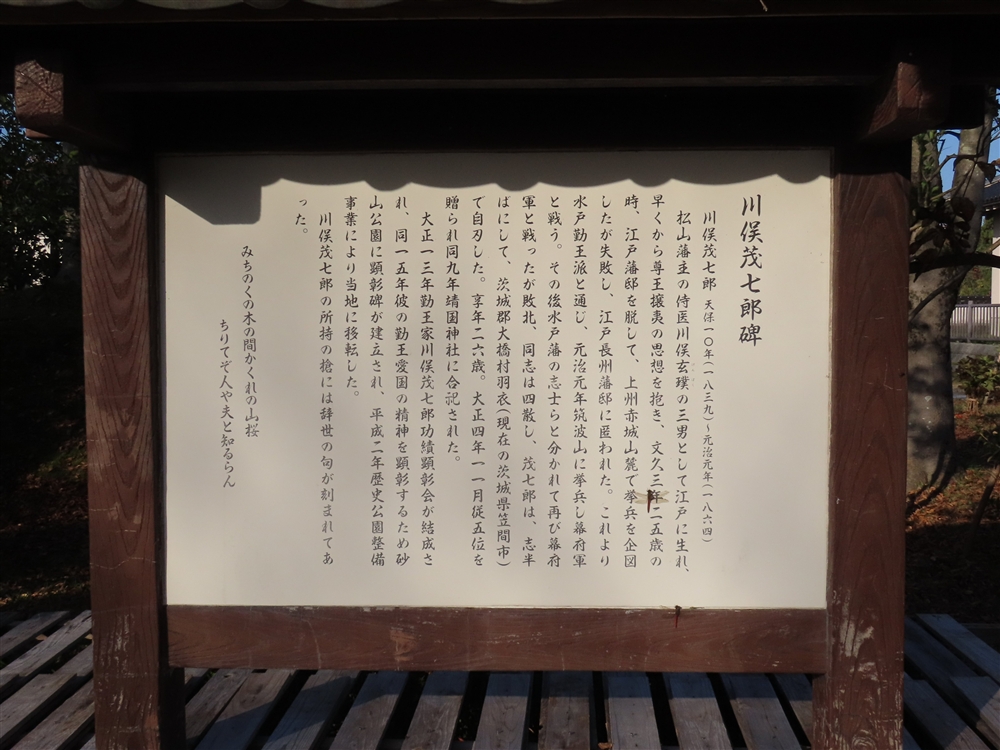 川俣茂七郎碑
川俣茂七郎 天保一〇年(一八三九)~元治元年(一八六四)
松山藩主の侍医川俣玄璞の三男として江戸に生れ、
早くから尊王攘夷の思想を抱き、文久三年二五歳の
時、江戸藩邸を脱して、上州赤城山麓で挙兵を企図
したが失敗し、江戸長州藩邸に匿われた。これより
水戸勤王派と通じ、元治元年筑波山に挙兵し幕府軍
と戦う。その後水戸藩の志士らと分かれて再び幕府
軍と戦ったが敗北、同志は四散し、茂七郎は、志半
ばにして、茨城郡大橋村羽衣(現在の茨城県笠間市)
で自刃した。享年二六歳。大正四年一一月従五位を
贈られ同九年靖国神社に合祀された。
大正一三年勤王家川俣茂七郎功績顕彰会が結成さ
れ、同一五年彼の勤王愛国の精神を顕彰するため砂
山公園に顕彰碑が建立され、平成二年歴史公園整備
事業により当地に移転した。
川俣茂七郎の所持の槍には辞世の句が刻まれてあ
った。
みちのくの木の間かくれの山桜
ちりてぞ人や夫と知るらん